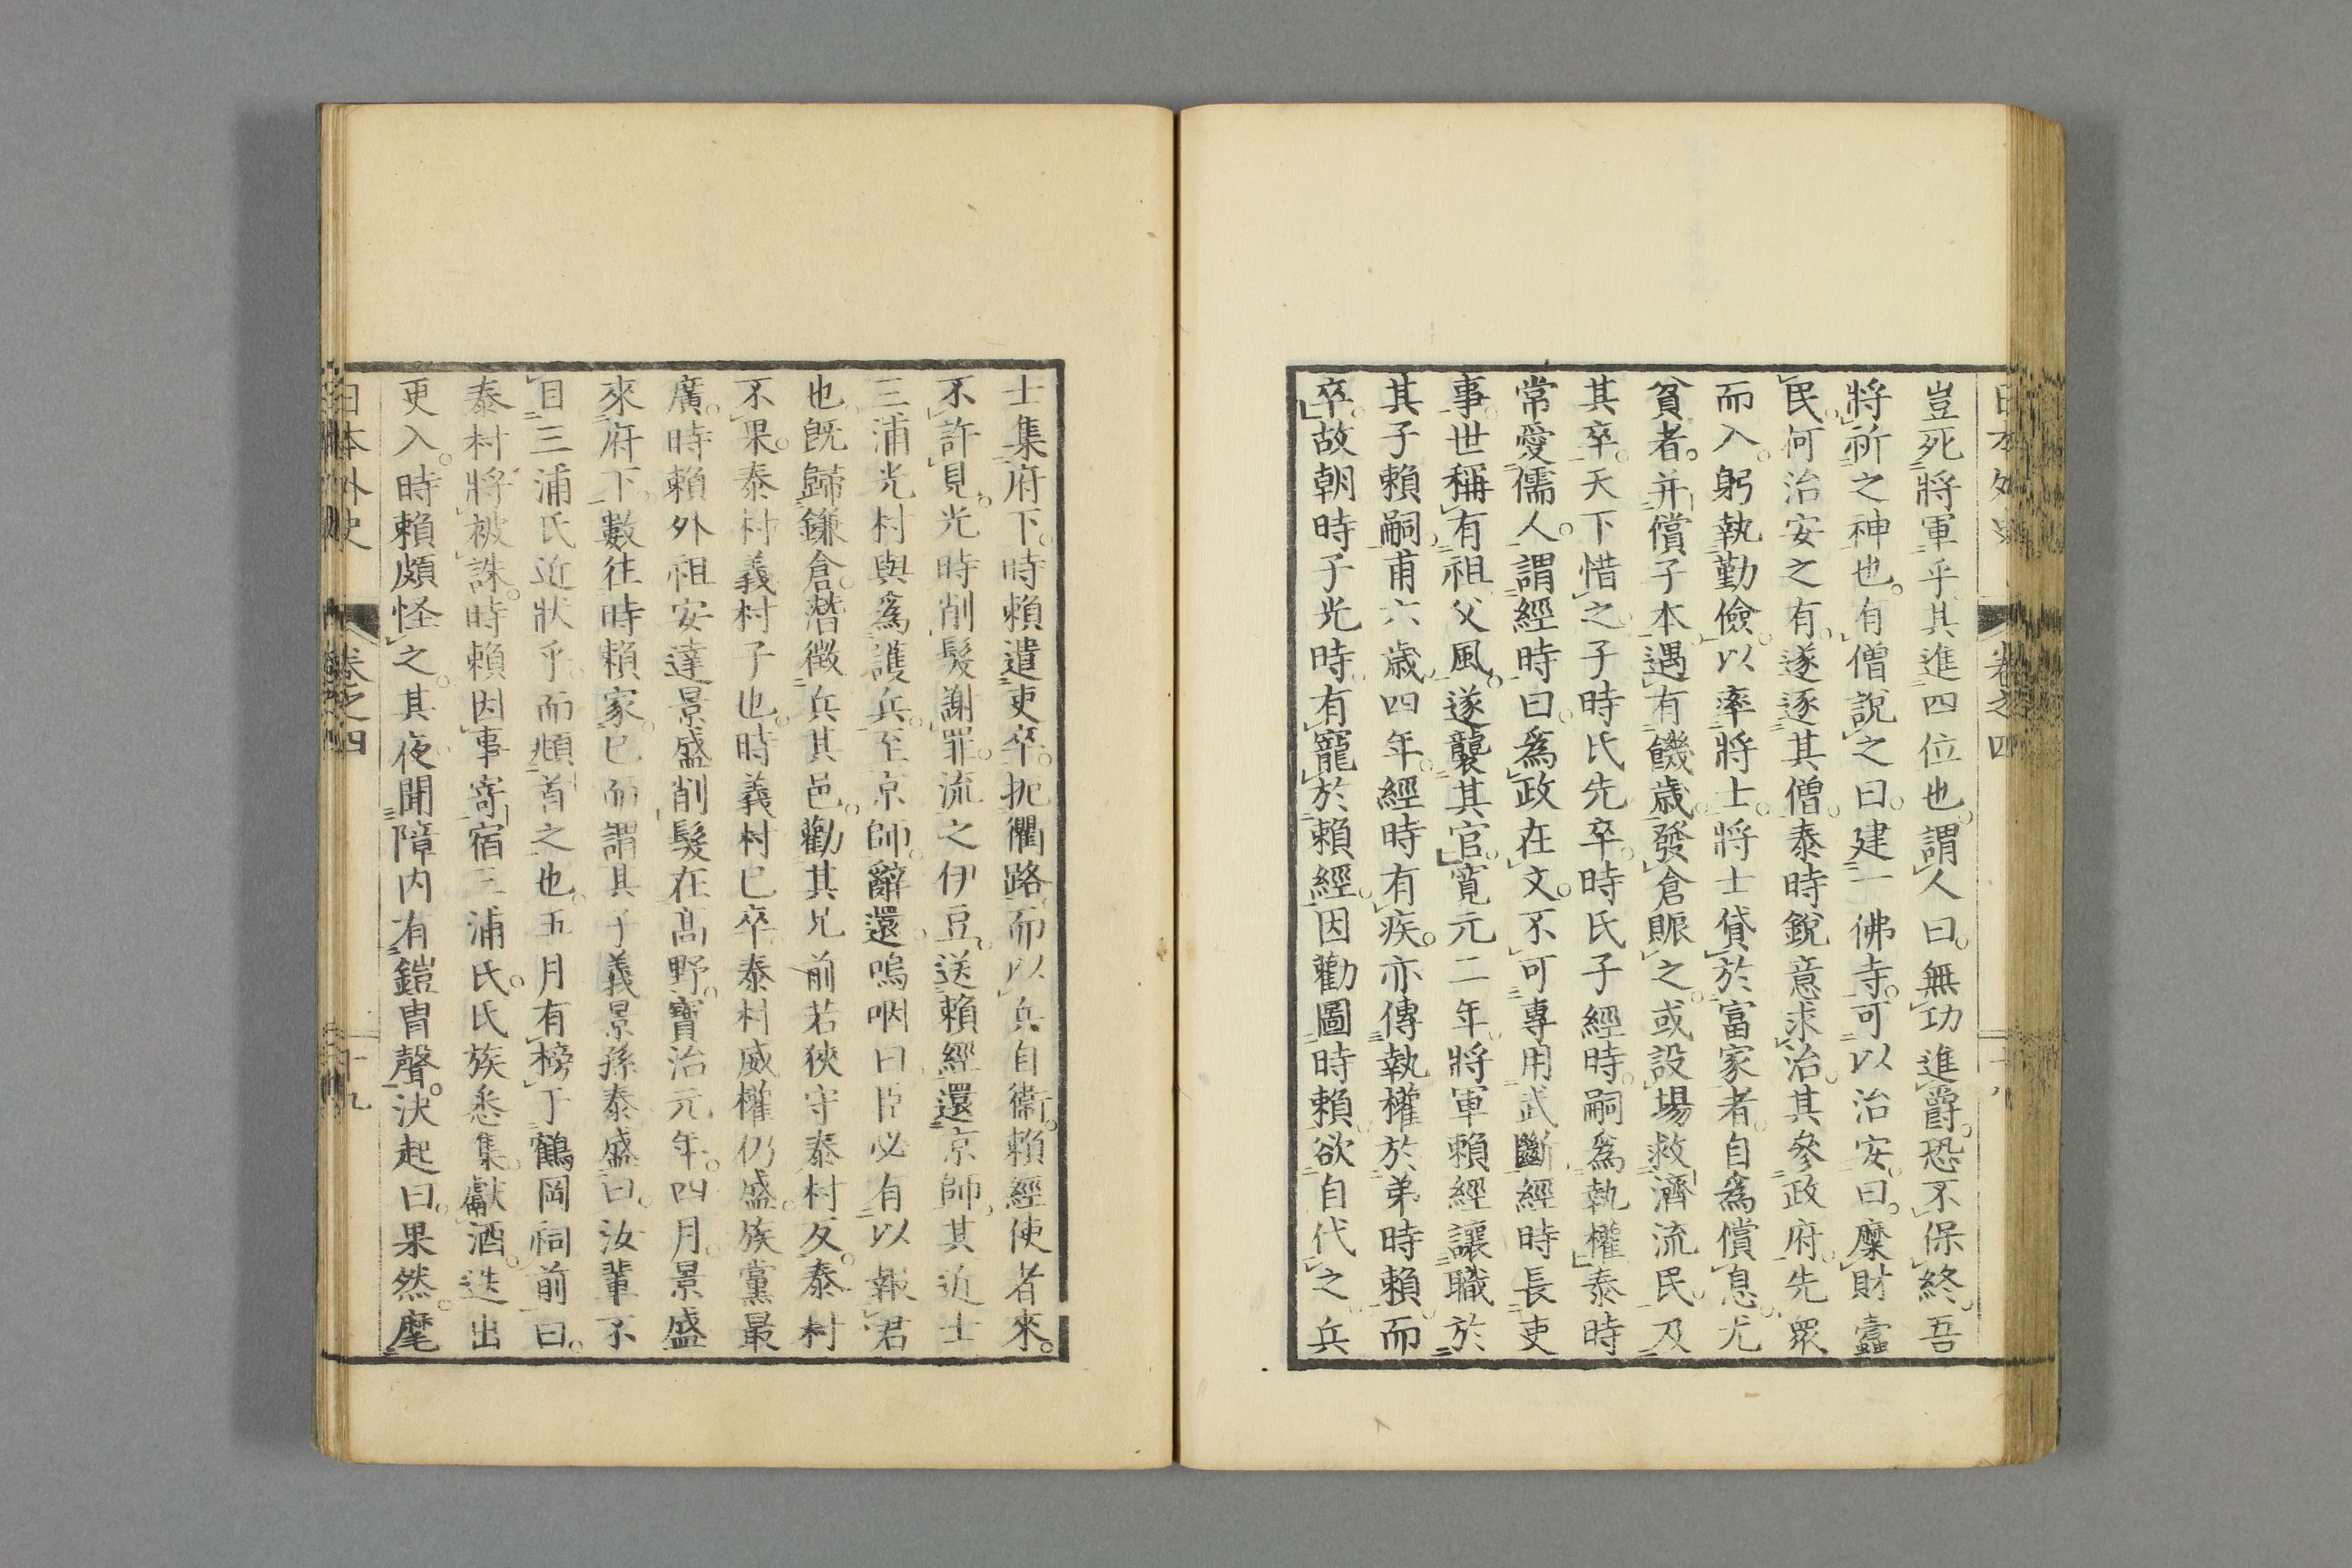 日本外史 卷之四 十八
豈死將軍乎其進四位也謂人曰。無功進爵。恐不保終。吾
將祈之神也。有僧說之曰。建一佛寺。可以治安。曰。糜財蠧
民。何治安之有。遂逐其僧。泰時銳意求治。其參政府。先眾
而入。躬執勤儉。以率將士。將士貸於富家者。自爲償息。尤
貧者。并償子本。遇有饑歲。發倉賑之。或設場救濟流民。及
其卒。天下惜之。子時氏先卒。時氏子經時。嗣爲執權。泰時
常愛儒人。謂經時曰。爲政在文。不可專用武斷。經時長吏
事。世稱有祖父風。遂襲其官。寬元二年。將軍賴經讓職於
其子賴嗣。甫六歲。四年。經時有疾。亦傳執權於弟時賴。而
卒。故朝時子光時。有寵於賴經。因勸圖時賴。欲自代之。兵
士集府下。時賴遣吏卒。扼衢路。而以兵自衞。賴經使者來。
不許見。光時削髮謝罪。流之伊豆。送賴經還京師。其近士
三浦光村與爲護兵。至京師。辭還。嗚咽曰。臣必有以報君
也。旣歸鎌倉。潛徵兵其邑。勸其兄前若狹守泰村反。泰村
不果。泰村義村子也。時義村已卒。泰村威權仍盛。族黨最
廣。時賴外祖安達景盛削髮在高野。寶治元年。四月。景盛
來府下。數往時賴家。已而謂其子義景孫泰盛曰。汝輩不
目三浦氏近狀乎。而頫首之也。五月有榜于鶴岡祠前曰。
泰村將被誅。時賴因事寄宿三浦氏。氏族悉集。獻酒。迭出
更入。時賴頗怪之。其夜聞障内有鎧冑聲。決起曰。果然。麾
日本外史 卷之四 十九